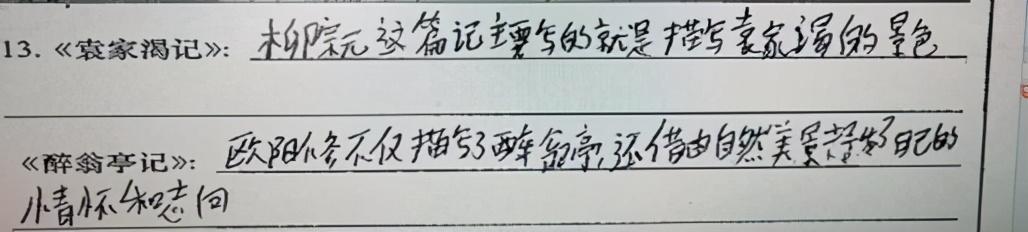 13.《袁家渴记》:柳宗元这篇记主要写的就是描写袁家渴的景色
《醉翁亭记》:欧阳修不仅描写了醉翁亭,还借由自然美景抒发了自己的
情怀和志向